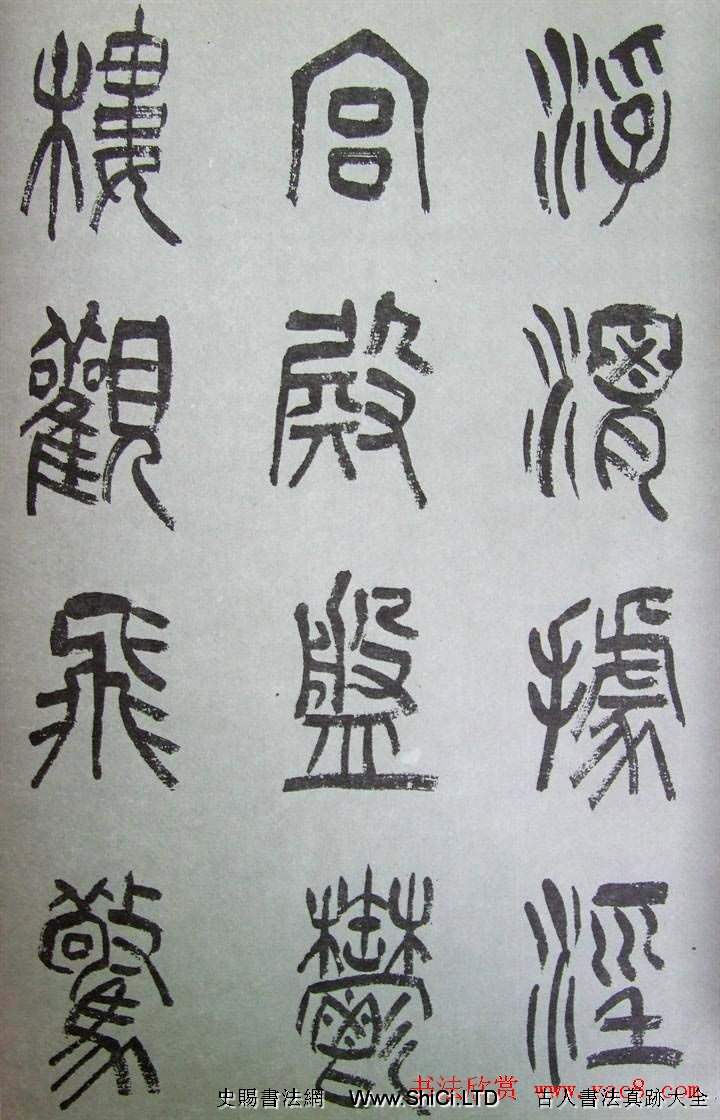 浮渭據涇
宮殿盤鬱
樓觀飛驚
书法欣赏 www.yac8.com
史賜書法網 Www.ShiCi.LTD 古人書法真跡大全